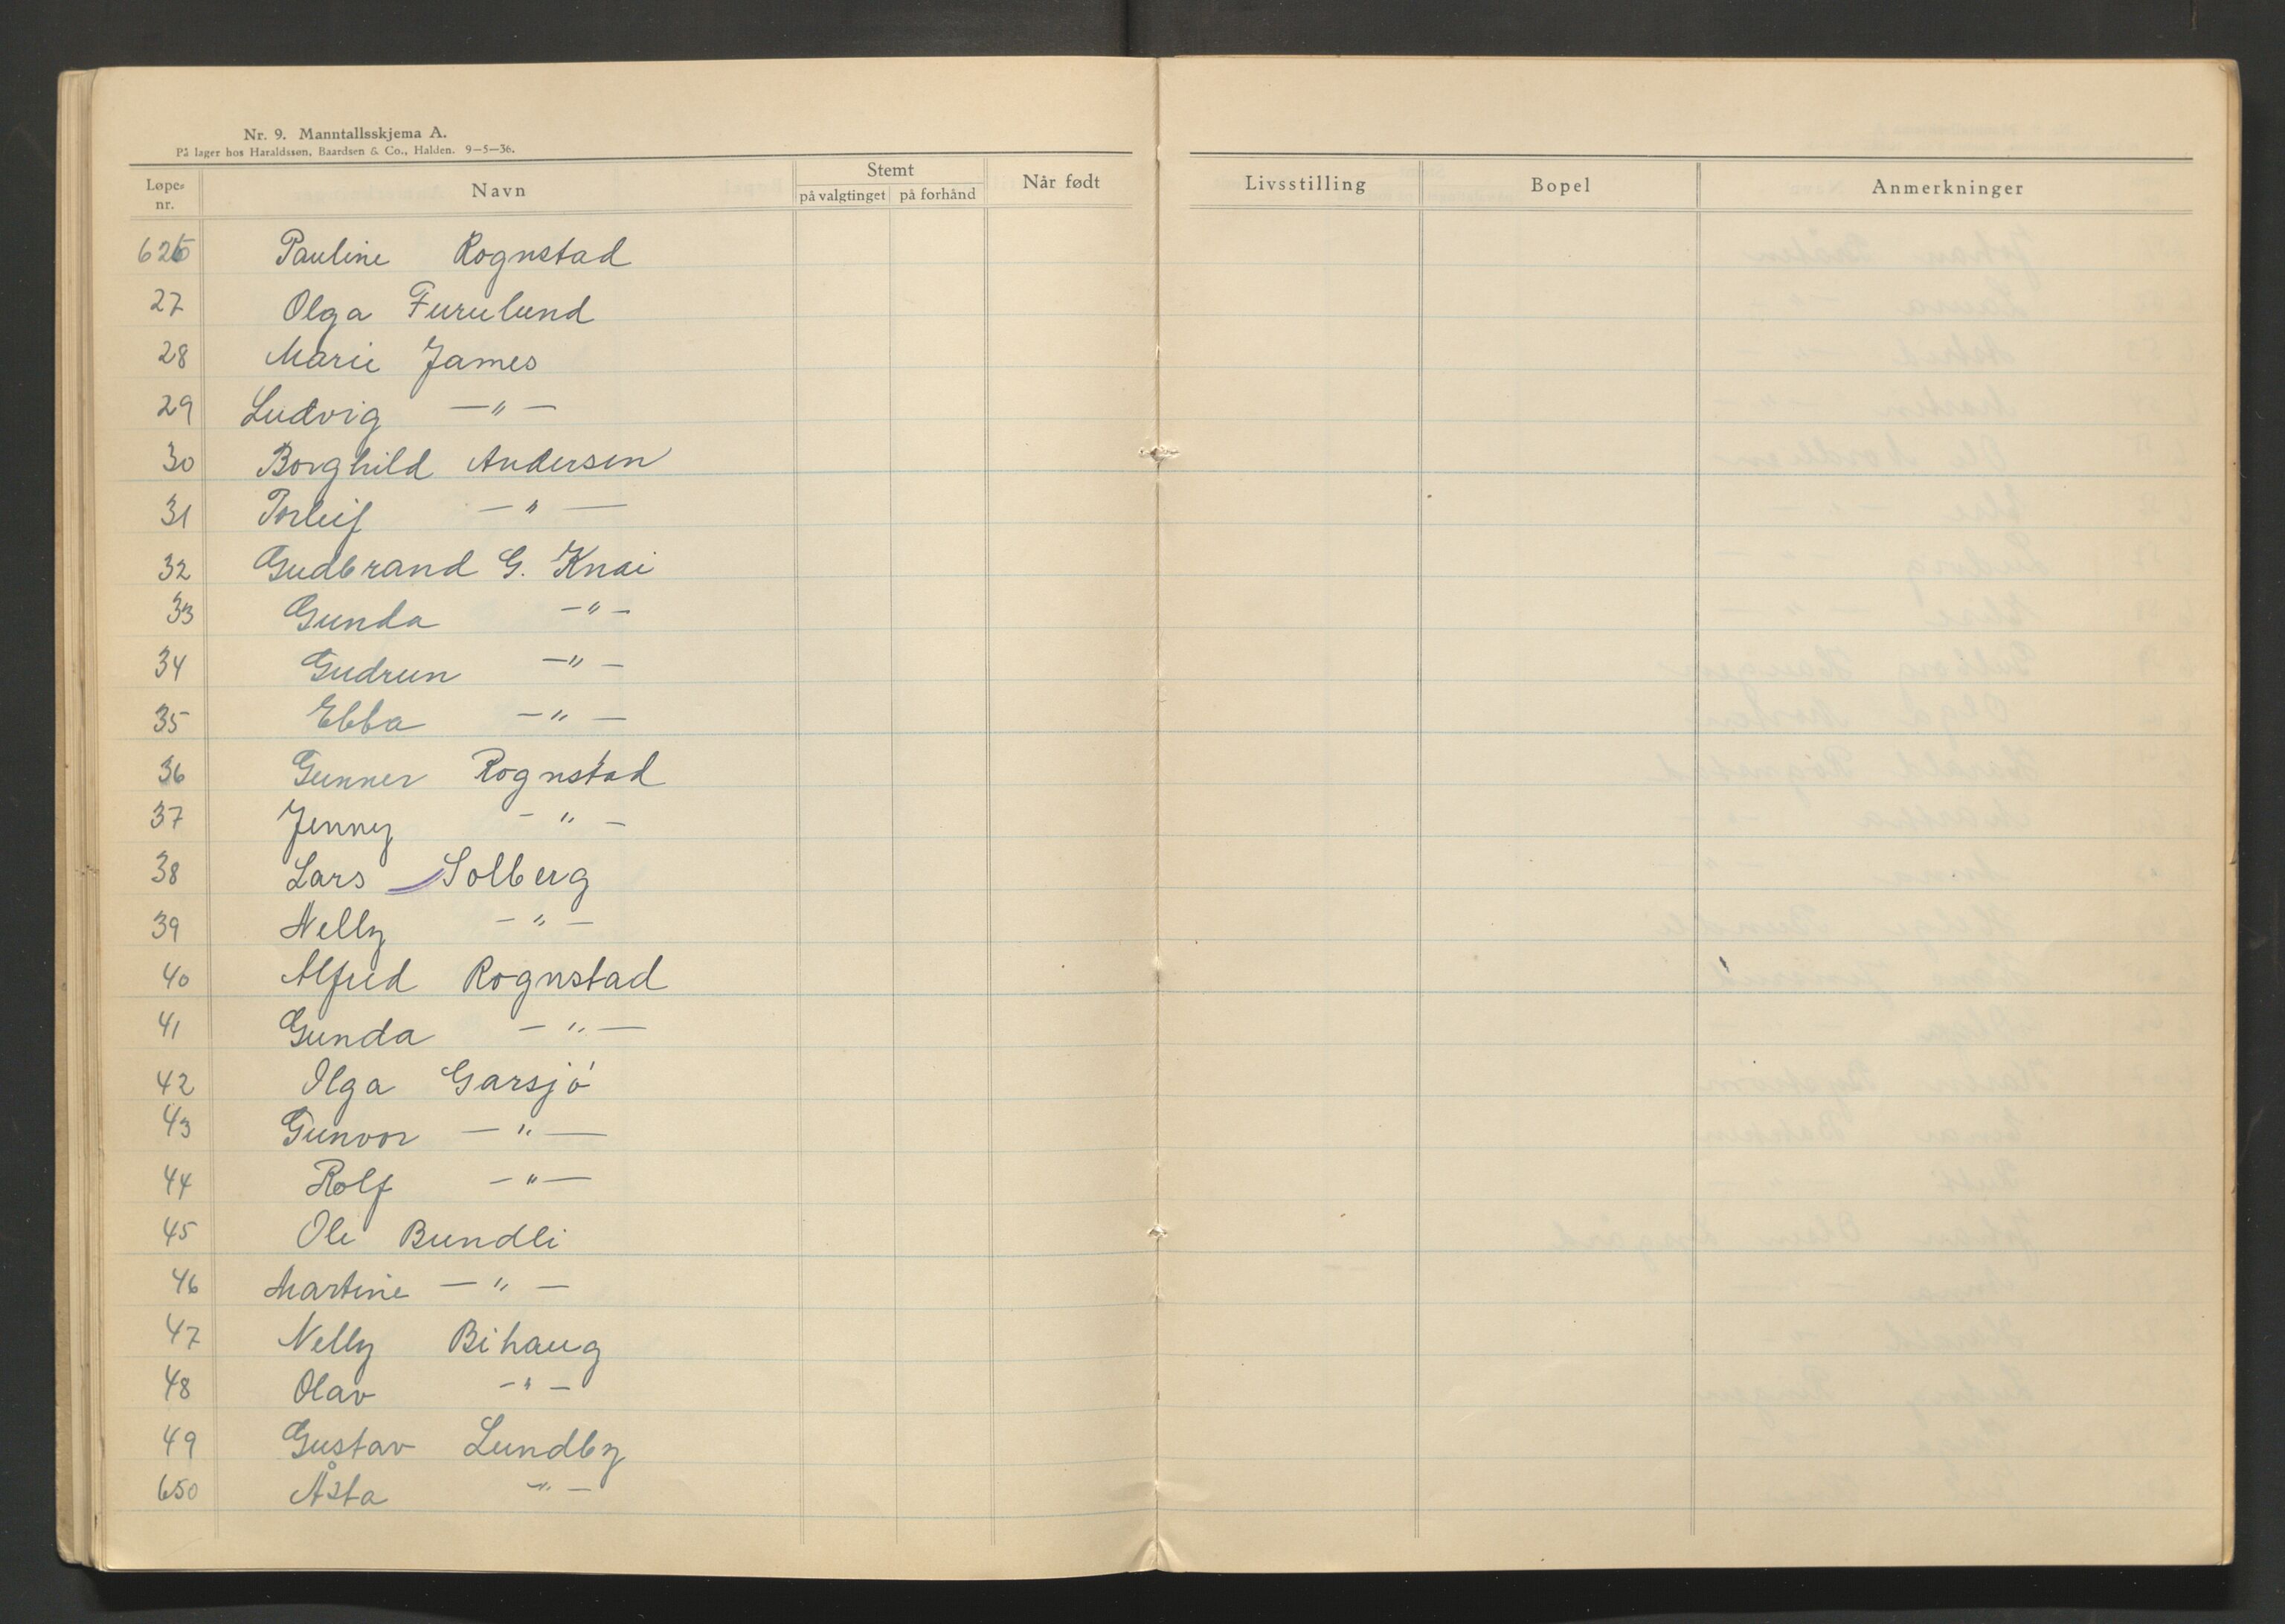 Nr. 9. Manntallsskjema A.
På lager hos Haraldssøn, Baardsen & Co., Halden. 9—5—36.
Løpe- nr. Navn Stemt på valgtinget på forhånd Når født Livsstilling Bopel Anmerkninger
626 Pauline Rognstad
27 Olga Furulund
28 Marie James
29 Ludvig —"—
30 Borghild Andersen
31 Torleif —"—
32 Gudbrand G. Knai
33 Gunda —"—
34 Gudrun —"—
35 Ebba —"—
36 Gunner Rognstad
37 Jenny —"—
38 Lars Solberg
39 Nelly —"—
40 Alfred Rognstad
41 Gunda —"—
42 Olga Garsjø
43 Gunvor —"—
44 Rolf —"—
45 Ole Bundli
46 Martine —"—
47 Nelly Bihaug
48 Olav —"—
49 Gustav Lundby
650 Åsta —"—